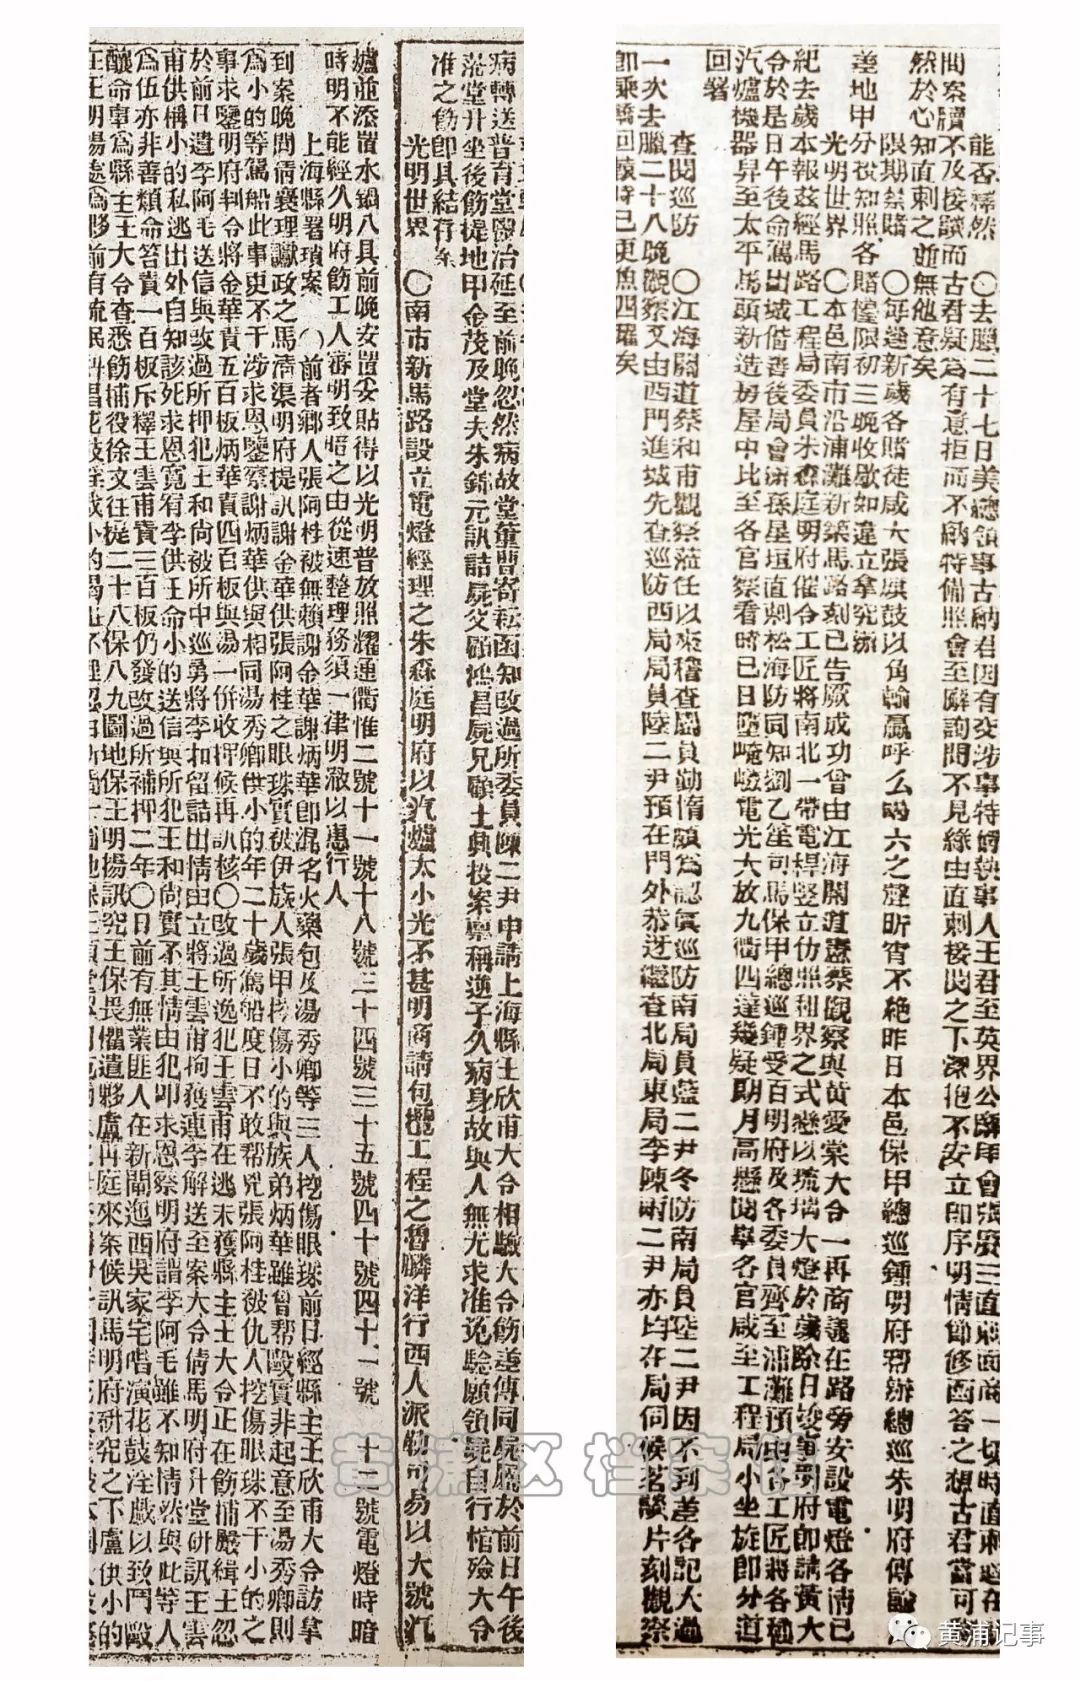 能否釋然　○去臘二十七日美總領事古納君因有交涉事特婦執事人王君至英界公廨會張賡三直刺面商一切時直刺
閱案牘不及接談而古君疑爲有意拒而不納特備照會至廨詢問不見緣由直刺接閱之下深抱不安立卽序明情節修函答之想古君當可
然於心知直刺之並無他意矣
限期禁賭　○每逢新歲各賭徒咸大張旗鼓以角輸贏呼么喝六之聲昕宵不絕昨日本邑保甲總巡鍾明府幫辦總巡朱明府傳諭
差地甲分投知照各賭檯限初三晚收歇如違立拿究辦
光明世界　○本邑南市沿浦灘新築馬路刻已告厥成功曾由江海關道蔡觀察與黃愛棠大令一再商議在路旁安設電燈各情已
紀去歲本報茲經馬路工程局委員朱森庭明府催令工匠將南北一帶電桿竪立仿照租界之式懸以琉璃大燈於歲除日竣事明府卽請黃大
令於是日午後命駕出城偕善後局會辦孫星垣直刺松海防同知劉乙笙司馬保甲總巡鍾受百明府及各委員齊至浦灘預由各工匠將各種
汽爐機器舁至太平馬頭新造房屋中比至各官察看時已日墜崦嵫電光大放九衢四達幾疑朗月高懸閱畢各官咸至工程局小坐旋卽分道
回署
查閱巡防　○江海關道蔡和甫觀察蒞任以來稽查局員勤惰頗爲認眞巡防南局員藍二尹冬防南局員陸二尹因不到差各記大過
一次去臘二十八晚觀察又由西門進城先查巡防西局局員陸二尹預在門外恭迓繼查北局東局李陳兩二尹亦均在局伺候茗談片刻觀察
卽乘轎回轅時已更魚四躍矣
病轉送普育堂醫治延至前晚忽然病故堂董曹寄耘函知改過所委員陳二尹申請上海縣王欣甫大令相驗大令飭差傳同屍屬於前日午後
蒞堂升坐後飭提地甲金茂及堂夫朱錦元訊詰屍父顧鴻昌屍兄顧土興投案稟稱逆子久病身故與人無尤求准免驗願領屍自行棺殮大令
准之飭卽具結存案
光明世界　○南市新馬路設立電燈經理之朱森庭明府以汽爐太小光不甚明商請包攬工程之魯麟洋行西人派勒可易以大號汽
爐並添置水鍋八具前晚安置妥貼得以光明普放照耀通衢惟二號十一號十八號三十四號三十五號四十號四十一號　十二號電燈時暗
時明不能經久明府飭工人審明致暗之由從速整理務須一律明澈以惠行人
上海縣署瑣案　○前者鄉人張阿桂被無賴謝金華謝炳華卽混名火藥包及湯秀卿等三人挖傷眼珠前日經縣主王欣甫大令訪拿
到案晚間倩襄理讞政之馬濟渠明府提訊謝金華供張阿桂之眼珠實被伊族人張甲挖傷小的與族弟炳華雖曾帮毆實非起意至湯秀卿則
爲小的等駕船此事更不干涉求恩鑒察謝炳華供與相同湯秀卿供小的年二十歲駕船度日不敢帮兇張阿桂被仇人挖傷眼珠不干小的之
事求鑒明府判令將金華責五百板炳華責四百板與湯一併收押候再訊核○改過所逸犯王雲甫在逃未獲縣主王大令正在飭捕嚴緝王忽
於前日遣李阿毛送信與改過所押犯王和尚被所中巡勇將李扣留詰出情由立將王雲甫拘獲連李解送至案大令倩馬明府升堂硏訊王雲
甫供稱小的私逃出外自知該死求恩寬宥李供王命小的送信與所犯王和尚實不其情由犯叩求恩察明府謂李阿毛雖不知情然與此等人
爲伍亦非善類命笞責一百板斥釋王雲甫責三百板仍發改過所補押二年○日前有無業匪人在新閘迤西吳家宅唱演花鼓淫戲以致鬥毆
釀命事爲縣主王大令查悉飭捕役徐文往提二十八保八九圖地保王明揚訊究王保畏懼遣夥盧再庭來案候訊馬明府硏究之下盧供小的
在王明揚處爲夥前有流氓
黄浦区档案馆
黄浦记事